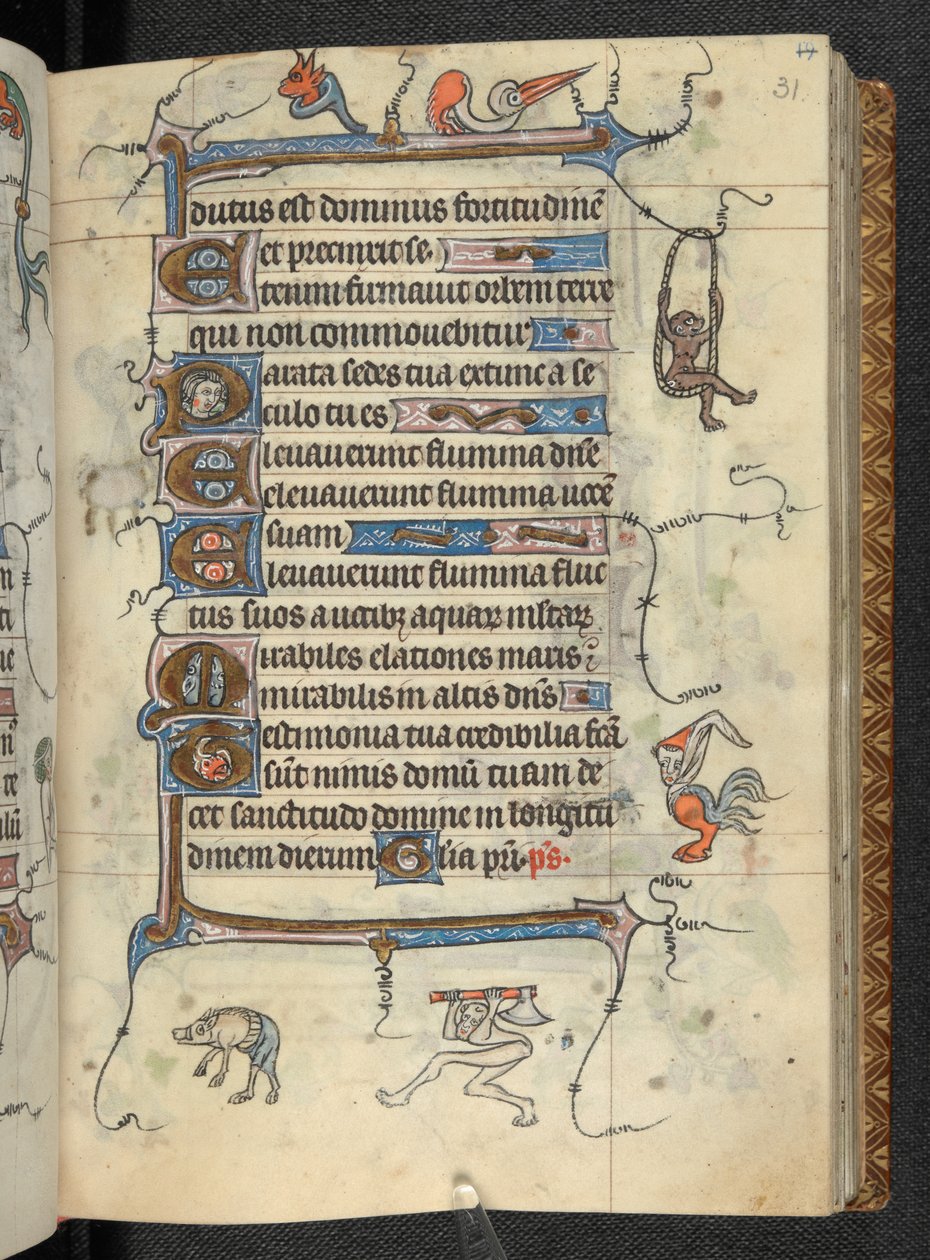 19
31.
dutus est dominus fortitudinē
et precinxit se.
Etenim firmauit orbem terre
qui non commouebitur
Parata sedes tua ex tunc a se
culo tu es
Eleuauerunt flumina dn̄e
eleuauerunt flumina uocē
suam
Eleuauerunt flumina fluc
tus suos a uocibꝫ aquaꝝ multaꝝ
Mirabiles elationes maris
mirabilis in altis dn̄s
Testimonia tua credibilia fc̄a
sūt nimis domū tuam de
cet sanctitudo domine in longitu
dinem dierum Gl̄ia pr̄i. p̄s.